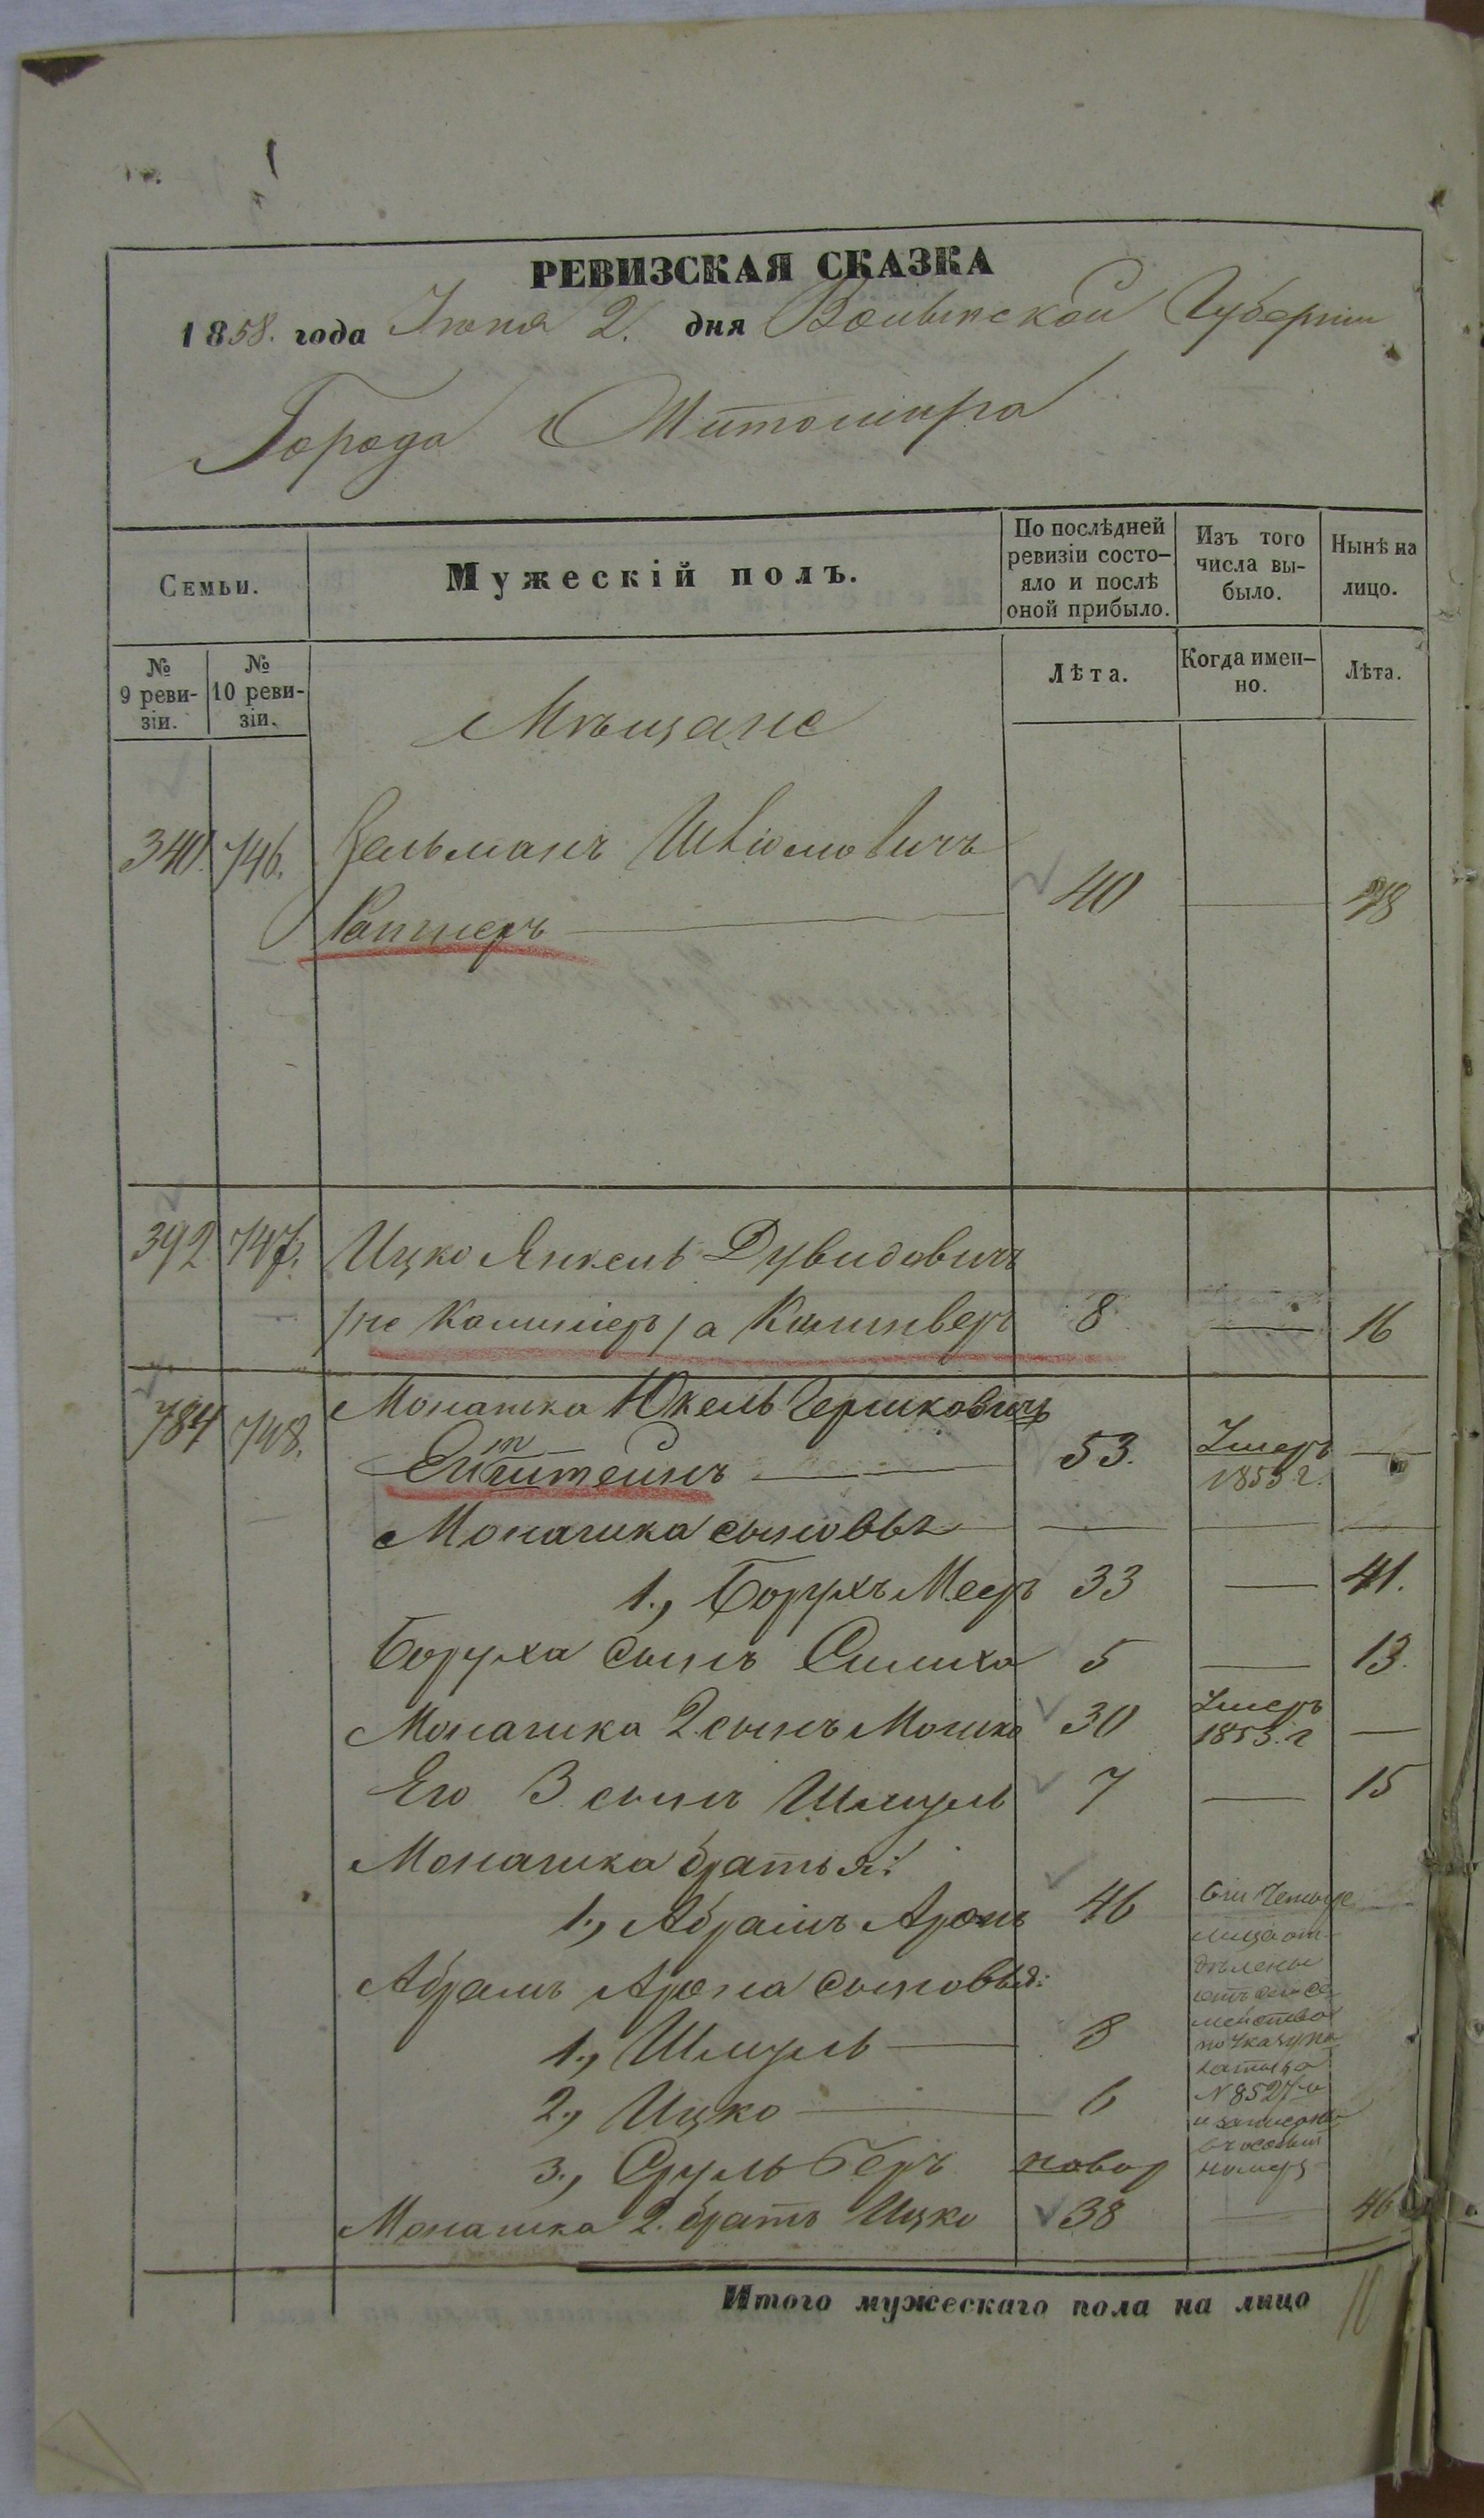 РЕВИЗСКАЯ СКАЗКА
1858. года Июня 2. дня Волынской Губерніи
Города Житомира
Семьи.
Мужескій полъ.
По послѣдней ревизіи состо-
яло и послѣ
оной прибыло.
Изъ того
числа вы-
было.
Нынѣ на
лицо.
№
9 реви-
зіи.
№
10 реви-
зіи.
Лѣта.
Когда имен-
но.
Лѣта.
Мѣщане
340. 746. Зельманъ
40 48
392 747. Ицко Янкель Дувидовичъ
/не а 8 — 16
784 748. Монашка Юкель Гершковичъ
53. Умеръ
1855 г. —
Монашка сыновья — — —
1., Борухъ Меръ 33 — 41.
Боруха сынъ Симха 5 — 13.
Монашка 2. сынъ Мошко 30 Умеръ
1853. г —
Его 3. сынъ Шмуль 7 — 15
Монашка братья:
1., Абрамъ Аронъ 46 Сіи четыре
лица от-
дѣлены
Абрамъ Арона сыновья:
1., Шмуль — 8
2., Ицко — 6 № 8527
и записаны
въ особый
номеръ
3., Сруль Беръ новор
Монашка 2. братъ Ицко 38 — 46
Итого мужескаго пола на лицо 10